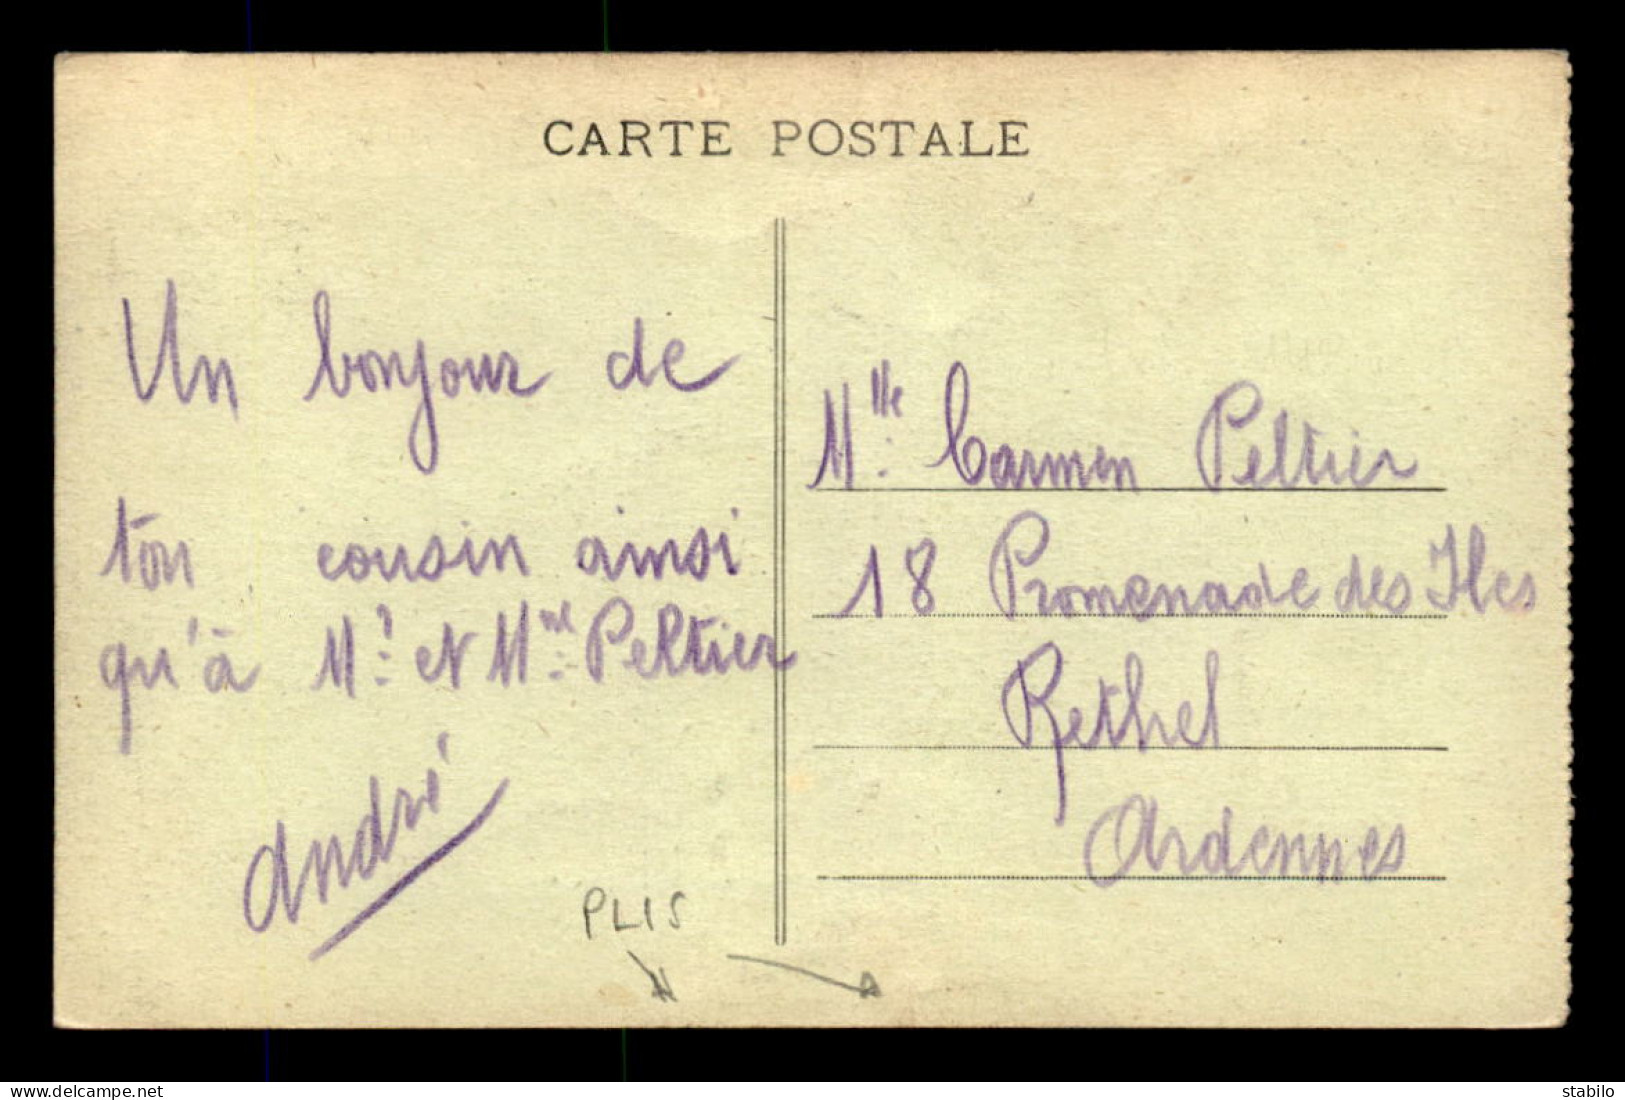 CARTE POSTALE
Un bonjour de
ton cousin ainsi
qu'à Mr. et Mme. Peltier
André
PLIS
Mlle. Carmen Peltier
18 Promenade des Iles
Rethel
Ardennes
www.delcampe.net
stabilo